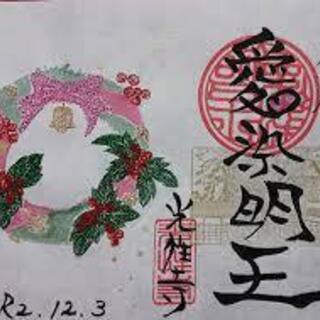 愛染明王
光性寺
R2.12.3